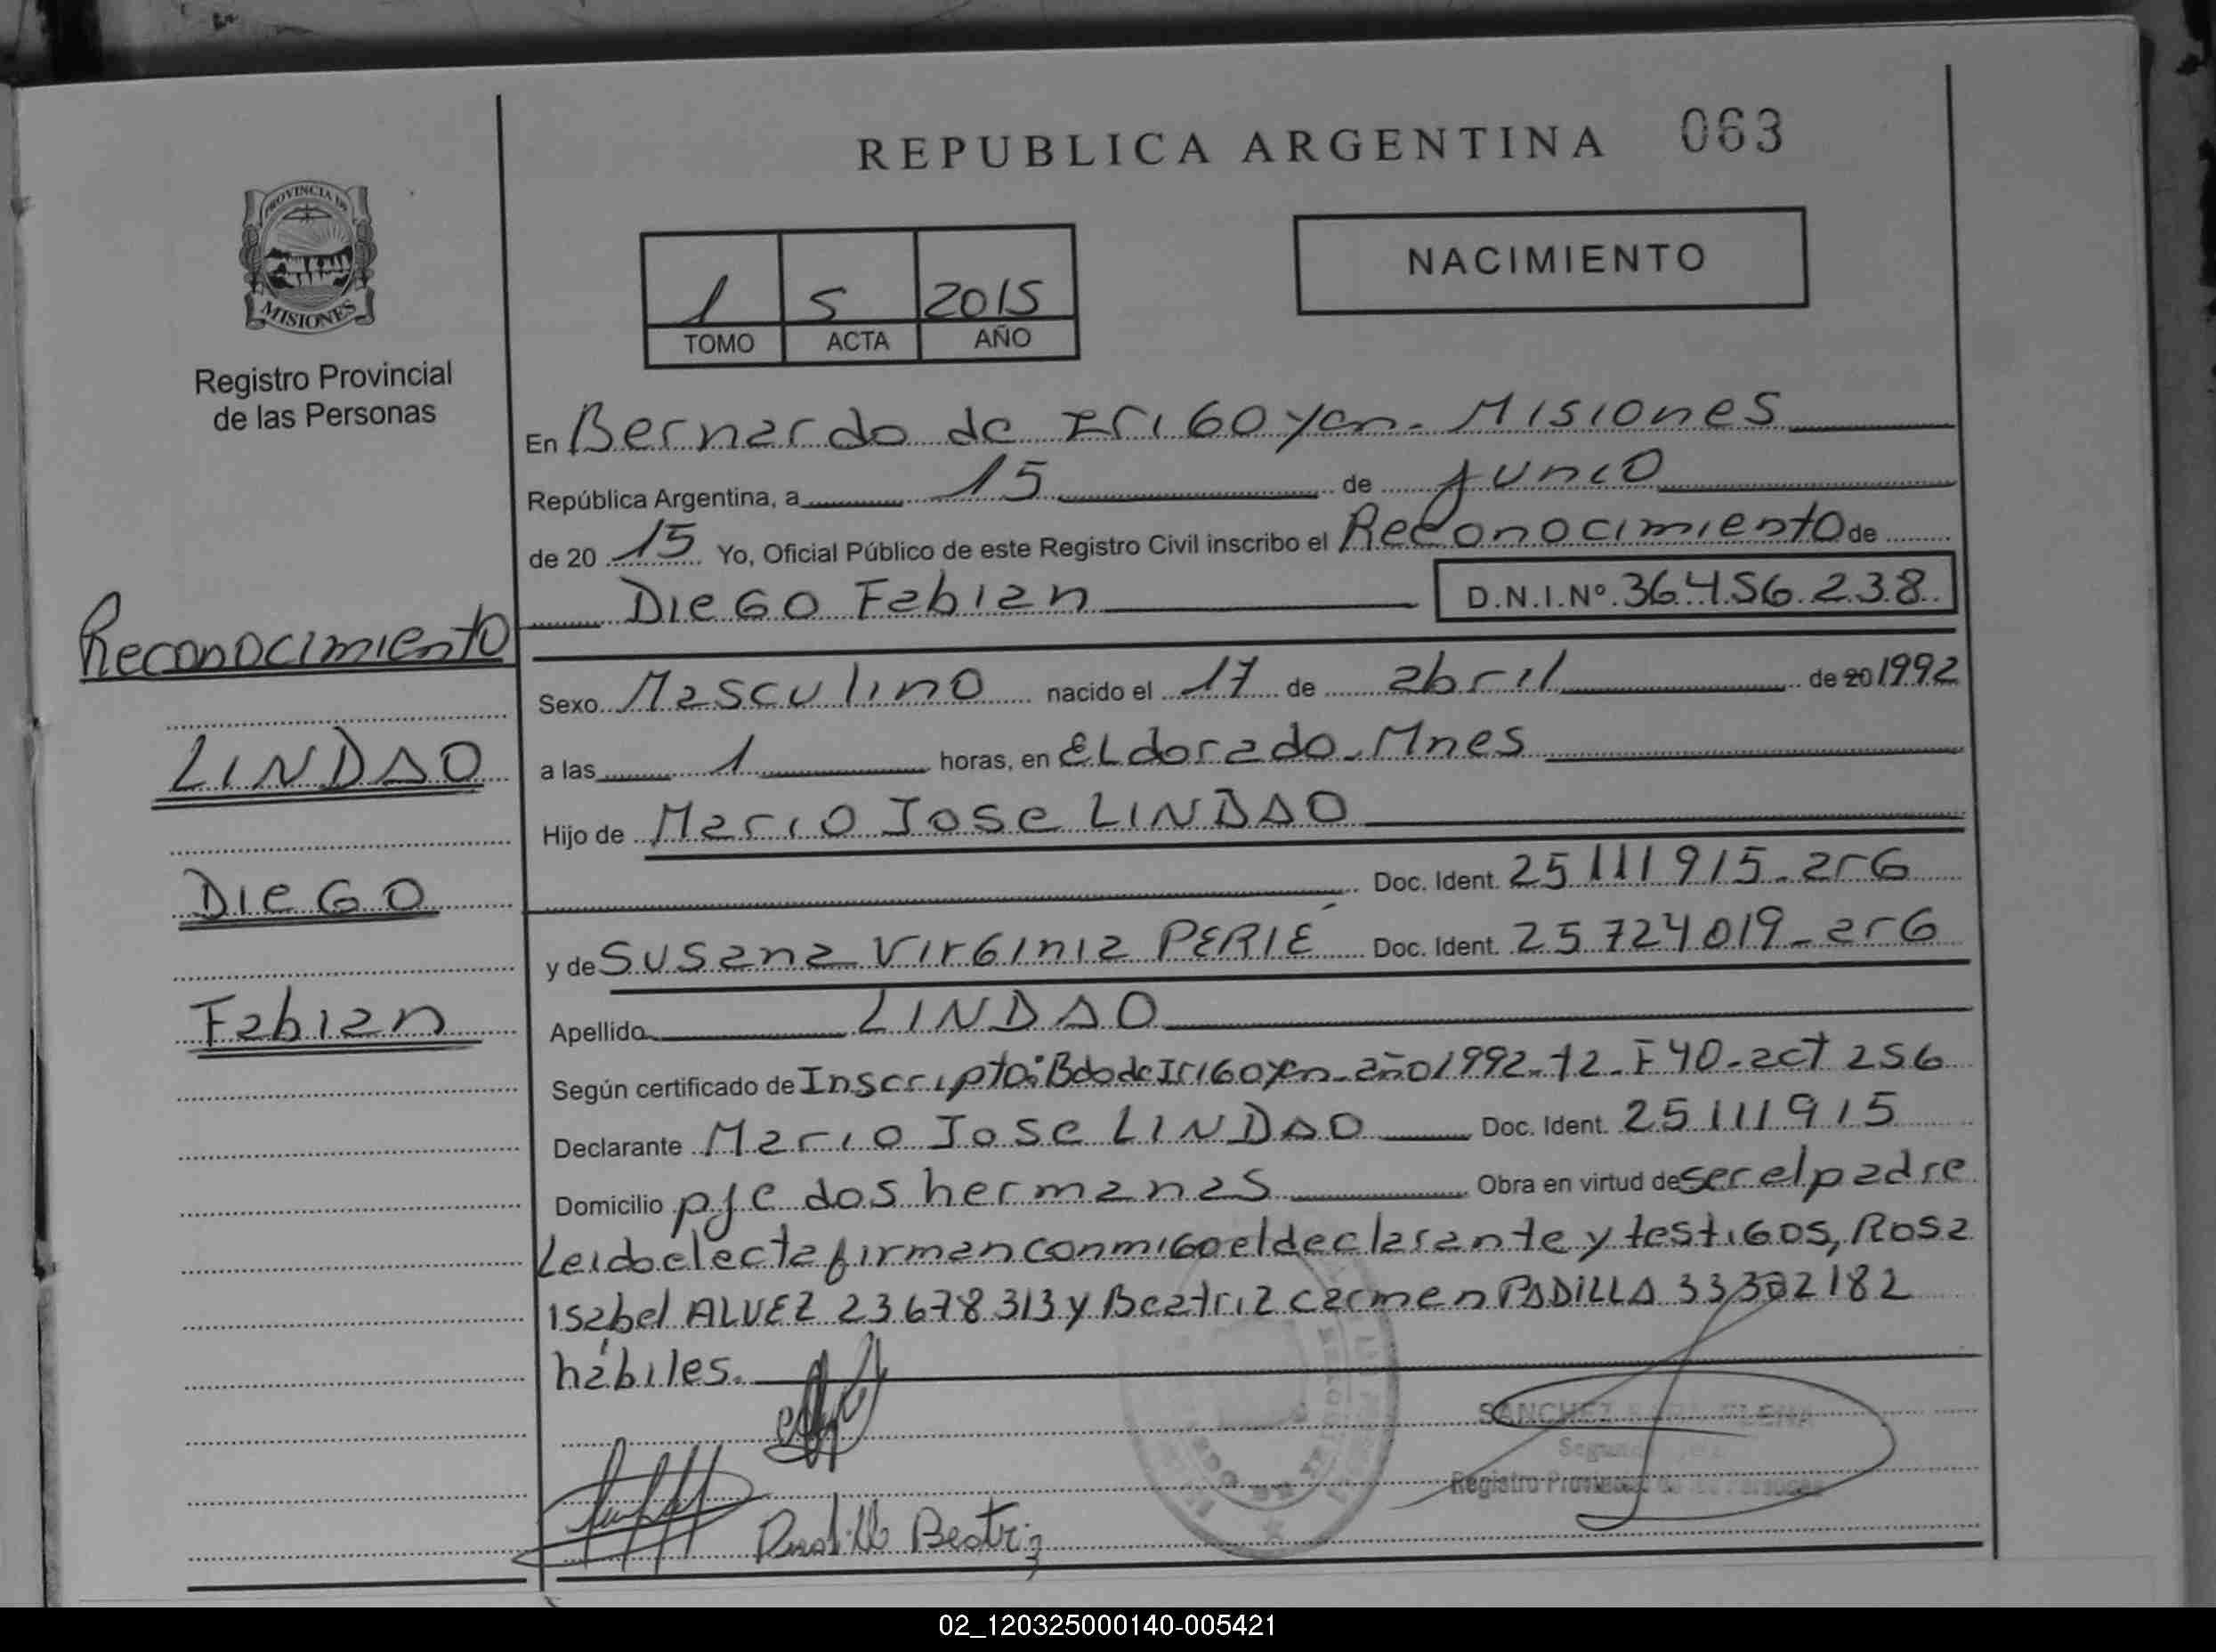 REPUBLICA ARGENTINA 063
PROVINCIA DE
MISIONES
Registro Provincial
de las Personas
NACIMIENTO
1 5 2015
TOMO ACTA AÑO
En Bernardo de Irigoyen - Misiones
República Argentina, a 15 de junio
de 20 15 Yo, Oficial Público de este Registro Civil inscribo el Reconocimiento de
Diego Fabian D.N.I.Nº 36.456.238
Reconocimiento
Sexo Masculino nacido el 17 de abril de 20 1992
LINDAO
a las 1 horas, en Eldorado - Mnes
Hijo de Mario Jose LINDAO
Doc. Ident. 25111915 - arg
Diego
y de Susana Virginia PERIÉ Doc. Ident. 25724019 - arg
Fabian
Apellido LINDAO
Según certificado de Inscripto: Bdo de Irigoyen - año 1992 - t2 - F40 - act 256
Declarante Mario Jose LINDAO Doc. Ident. 25111915
Domicilio pje dos hermanas Obra en virtud de ser el padre
Leido el acta firman conmigo el declarante y testigos, Rosa
Isabel ALVEZ 23678313 y Beatriz Carmen PADILLA 33382182
hábiles.
SANCHEZ
Registro Provincial de las Personas
Padilla Beatriz
02_120325000140-005421